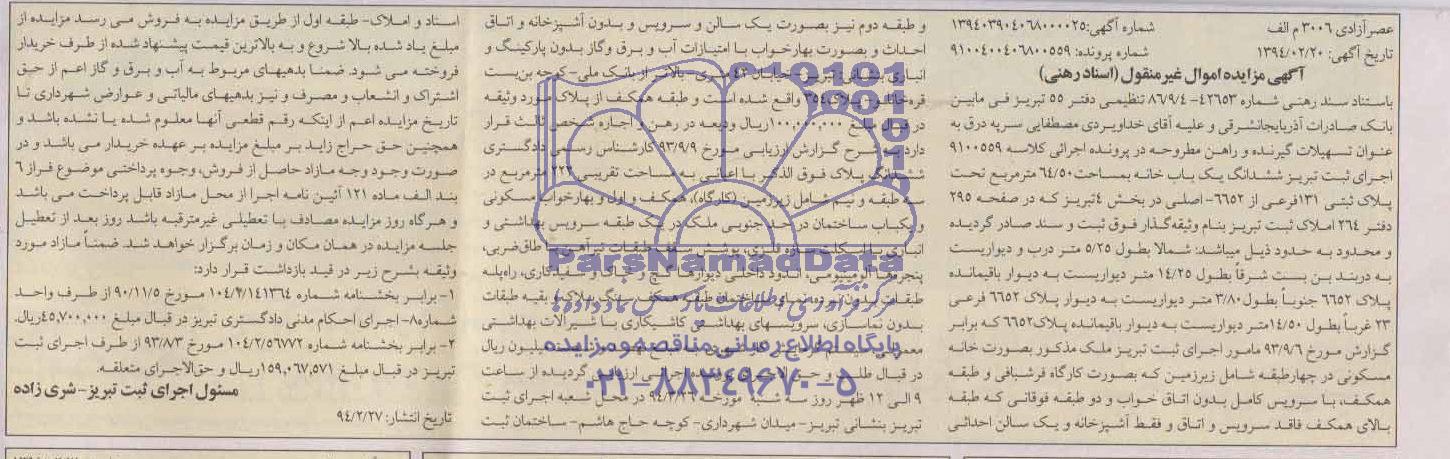 عصرآزادی ۳۰۰۶ م الف شماره آگهی: ۱۳۹۴۰۳۹۰۴۰۶۸۰۰۰۰۲۵
تاریخ آگهی: ۱۳۹۴/۰۲/۲۰ شماره پرونده: ۹۱۰۰۴۰۰۴۰۶۸۰۰۵۵۹
آگهی مزایده اموال غیرمنقول (اسناد رهنی)
باستناد سند رهنی شماره ۴۲۶۵۳-۸۶/۹/۴ تنظیمی دفتر ۵۵ تبریز فی مابین
بانک صادرات آذربایجانشرقی و علیه آقای خداویردی مصطفایی سرپه درق به
عنوان تسهیلات گیرنده و راهن مطروحه در پرونده اجرائی کلاسه ۹۱۰۰۵۵۹
اجرای ثبت تبریز ششدانگ یک باب خانه بمساحت ۶۴/۵۰ مترمربع تحت
پلاک ثبتی ۱۳۱فرعی از ۶۶۵۲- اصلی در بخش ۴تبریز که در صفحه ۲۹۵
دفتر ۲۶۴ املاک ثبت تبریز بنام وثیقه‌گذار فوق ثبت و سند صادر گردیده
و محدود به حدود ذیل میباشد: شمالا بطول ۵/۲۵ متر درب و دیواریست
به دربند بن بست شرقاً بطول ۱۴/۲۵ متر دیواریست به دیوار باقیمانده
پلاک ۶۶۵۲ جنوباً بطول ۳/۸۰ متر دیواریست به دیوار پلاک ۶۶۵۲ فرعی
۲۳ غرباً بطول ۱۴/۵۰متر دیواریست به دیوار باقیمانده پلاک ۶۶۵۲ که برابر
گزارش مورخ ۹۳/۹/۶ مامور اجرای ثبت تبریز ملک مذکور بصورت خانه
مسکونی در چهارطبقه شامل زیرزمین که بصورت کارگاه فرشبافی و طبقه
همکف، با سرویس کامل بدون اتاق خواب و دو طبقه فوقانی که طبقه
بالای همکف فاقد سرویس و اتاق و فقط آشپزخانه و یک سالن احداثی
و طبقه دوم نیز بصورت یک سالن و سرویس و بدون آشپزخانه و اتاق
احداث و بصورت بهارخواب با امتیازات آب و برق وگاز بدون پارکینگ و
انباری بنشانی: تبریز- خیابان ۴۲ متری- بالاتر از بانک ملی- کوچه بن‌بست
قره‌خانلو- پلاک ۳۵۴ واقع شده است و طبقه همکف از پلاک مورد وثیقه
در قبال مبلغ ۱۰۰,۰۰۰,۰۰۰ریال ودیعه در رهن و اجاره شخص ثالث قرار
دارد به شرح گزارش ارزیابی مورخ ۹۳/۹/۹ کارشناس رسمی دادگستری
ششدانگ پلاک فوق الذکر با اعیانی به مساحت تقریبی ۲۲۲ مترمربع در
سه طبقه و نیم شامل زیرزمین (کارگاه)، همکف و اول و بهارخواب مسکونی
و یکباب ساختمان در حد جنوبی ملک در یک طبقه سرویس بهداشتی و
انباری با اسکلت سازه فلزی، پوشش سقف طبقات تیرآهن با طاق‌ضربی،
پنجره‌ها آلومینیومی، اندود داخلی دیوارها گچ و خاک و سفیدکاری، راه‌پله
طبقات بدون نرده نمای ساختمان طبقه همکف سنگ پلاک و بقیه طبقات
بدون نماسازی، سرویسهای بهداشتی کاشیکاری با شیرآلات بهداشتی
میلیون ریال
در قبال طلب و حق اجرائی ارزیابی گردیده از ساعت
۹ الی ۱۲ ظهر روز سه شنبه مورخه در محل شعبه اجرای ثبت
تبریز بنشانی تبریز- میدان شهرداری- کوچه حاج هاشم- ساختمان ثبت
اسناد و املاک- طبقه اول از طریق مزایده به فروش می رسد مزایده از
مبلغ یاد شده بالا شروع و به بالاترین قیمت پیشنهاد شده از طرف خریدار
فروخته می شود. ضمنا بدهیهای مربوط به آب و برق و گاز اعم از حق
اشتراک و انشعاب و مصرف و نیز بدهیهای مالیاتی و عوارض شهرداری تا
تاریخ مزایده اعم از اینکه رقم قطعی آنها معلوم شده یا نشده باشد و
همچنین حق حراج زاید بر مبلغ مزایده بر عهده خریدار می باشد و در
صورت وجود وجه مازاد حاصل از فروش، وجوه پرداختی موضوع فراز ۶
بند الف ماده ۱۲۱ آئین نامه اجرا از محل مازاد قابل پرداخت می باشد
و هرگاه روز مزایده مصادف با تعطیلی غیرمترقبه باشد روز بعد از تعطیل
جلسه مزایده در همان مکان و زمان برگزار خواهد شد. ضمناً مازاد مورد
وثیقه بشرح زیر در قید بازداشت قرار دارد:
۱- برابر بخشنامه شماره ۱۰۴/۲/۱۴۱۳۶۴ مورخ ۹۰/۱۱/۵ از طرف واحد
شماره۸- اجرای احکام مدنی دادگستری تبریز در قبال مبلغ ۴۵,۷۰۰,۰۰۰ریال.
۲- برابر بخشنامه شماره ۱۰۴/۲/۵۶۷۷۲ مورخ ۹۳/۸/۳ از طرف اجرای ثبت
تبریز در قبال مبلغ ۱۵۹,۰۶۷,۵۷۱ریال و حق‌الاجرای متعلقه.
مسئول اجرای ثبت تبریز- شری زاده
تاریخ انتشار: ۹۴/۲/۲۷
ParsNamadData
پایگاه اطلاع رسانی مناقصه و مزایده
۰۲۱-۸۸۳۴۹۶۷۰-۵